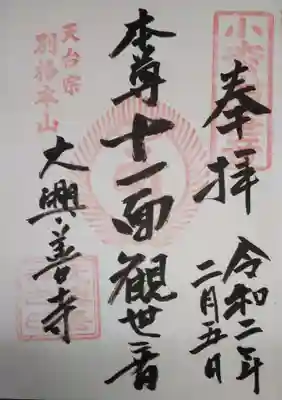 奉拝
令和二年
二月五日
本尊十一面觀世音
天台宗
別格本山
大興善寺